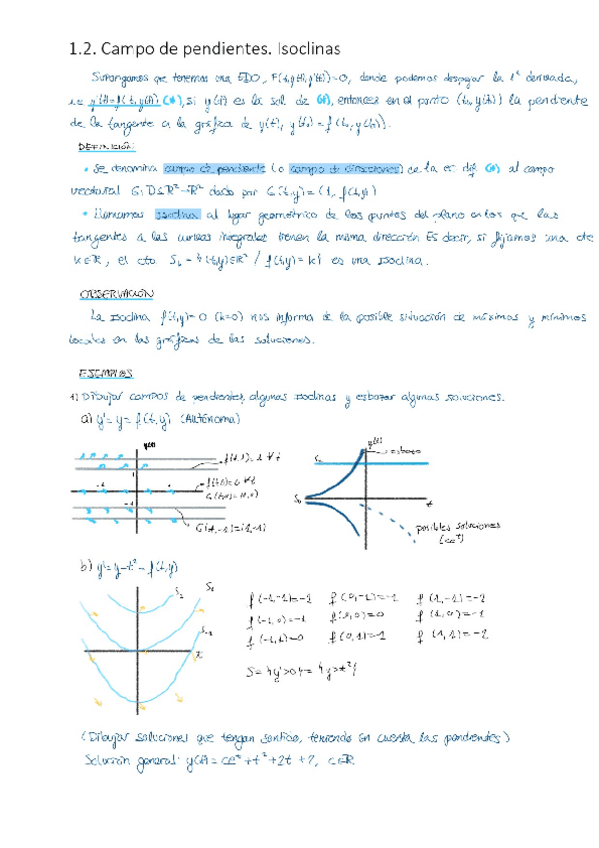 1.2. Campo de pendientes. Isoclinas
Supongamos que tenemos una EDO, F(t,y(t),y'(t))=0, donde podemos despejar la 1ª derivada,
i.e y'(t)=f(t,y(t)) (*), si y(t) es la sol de (*), entonces en el punto (t₀,y(t₀)) la pendiente
de la tangente a la gráfica de y(t), y'(t₀)=f(t₀,y(t₀)).
DEFINICIÓN:
• Se denomina campo de pendiente (o campo de direcciones) de la ec dif (*) al campo
vectorial G: D⊆ℝ²→ℝ² dado por G(t,y)=(1, f(t,y))
• Llamamos isoclina al lugar geométrico de los puntos del plano en los que las
tangentes a las curvas integrales tienen la misma dirección Es decir, si fijamos una cte
k∈ℝ, el cto Sₖ = {(t,y)∈ℝ² / f(t,y)=k} es una isoclina.
OBSERVACIÓN
La isoclina f(t,y)=0 (k=0) nos informa de la posible situación de máximos y mínimos
locales en las gráficas de las soluciones.
EJEMPLOS
1) Dibujar campos de pendientes, algunas isoclinas y esbozar algunas soluciones.
a) y'=y=f(t,y) (Autónoma)
y(t)
f(t,1)=1 ∀t
f(t,0)=0 ∀t
G(t,0)=(1,0)
G(t,-1)=(1,-1)
y(t)
S₁
S₀
t
posibles soluciones
(ceᵗ)
b) y'=y-t²=f(t,y)
S₁
S₀
S₋₁
t
f(-1,-1)=-2 f(0,-1)=-1 f(1,-1)=-2
f(-1,0)=-1 f(0,0)=0 f(1,0)=-1
f(-1,1)=0
S={y'>0}={y>t²}
(Dibujar soluciones que tengan sentido, teniendo en cuenta las pendientes)
Solución general: y(t)=ceᵗ+t²+2t+2, c∈ℝ